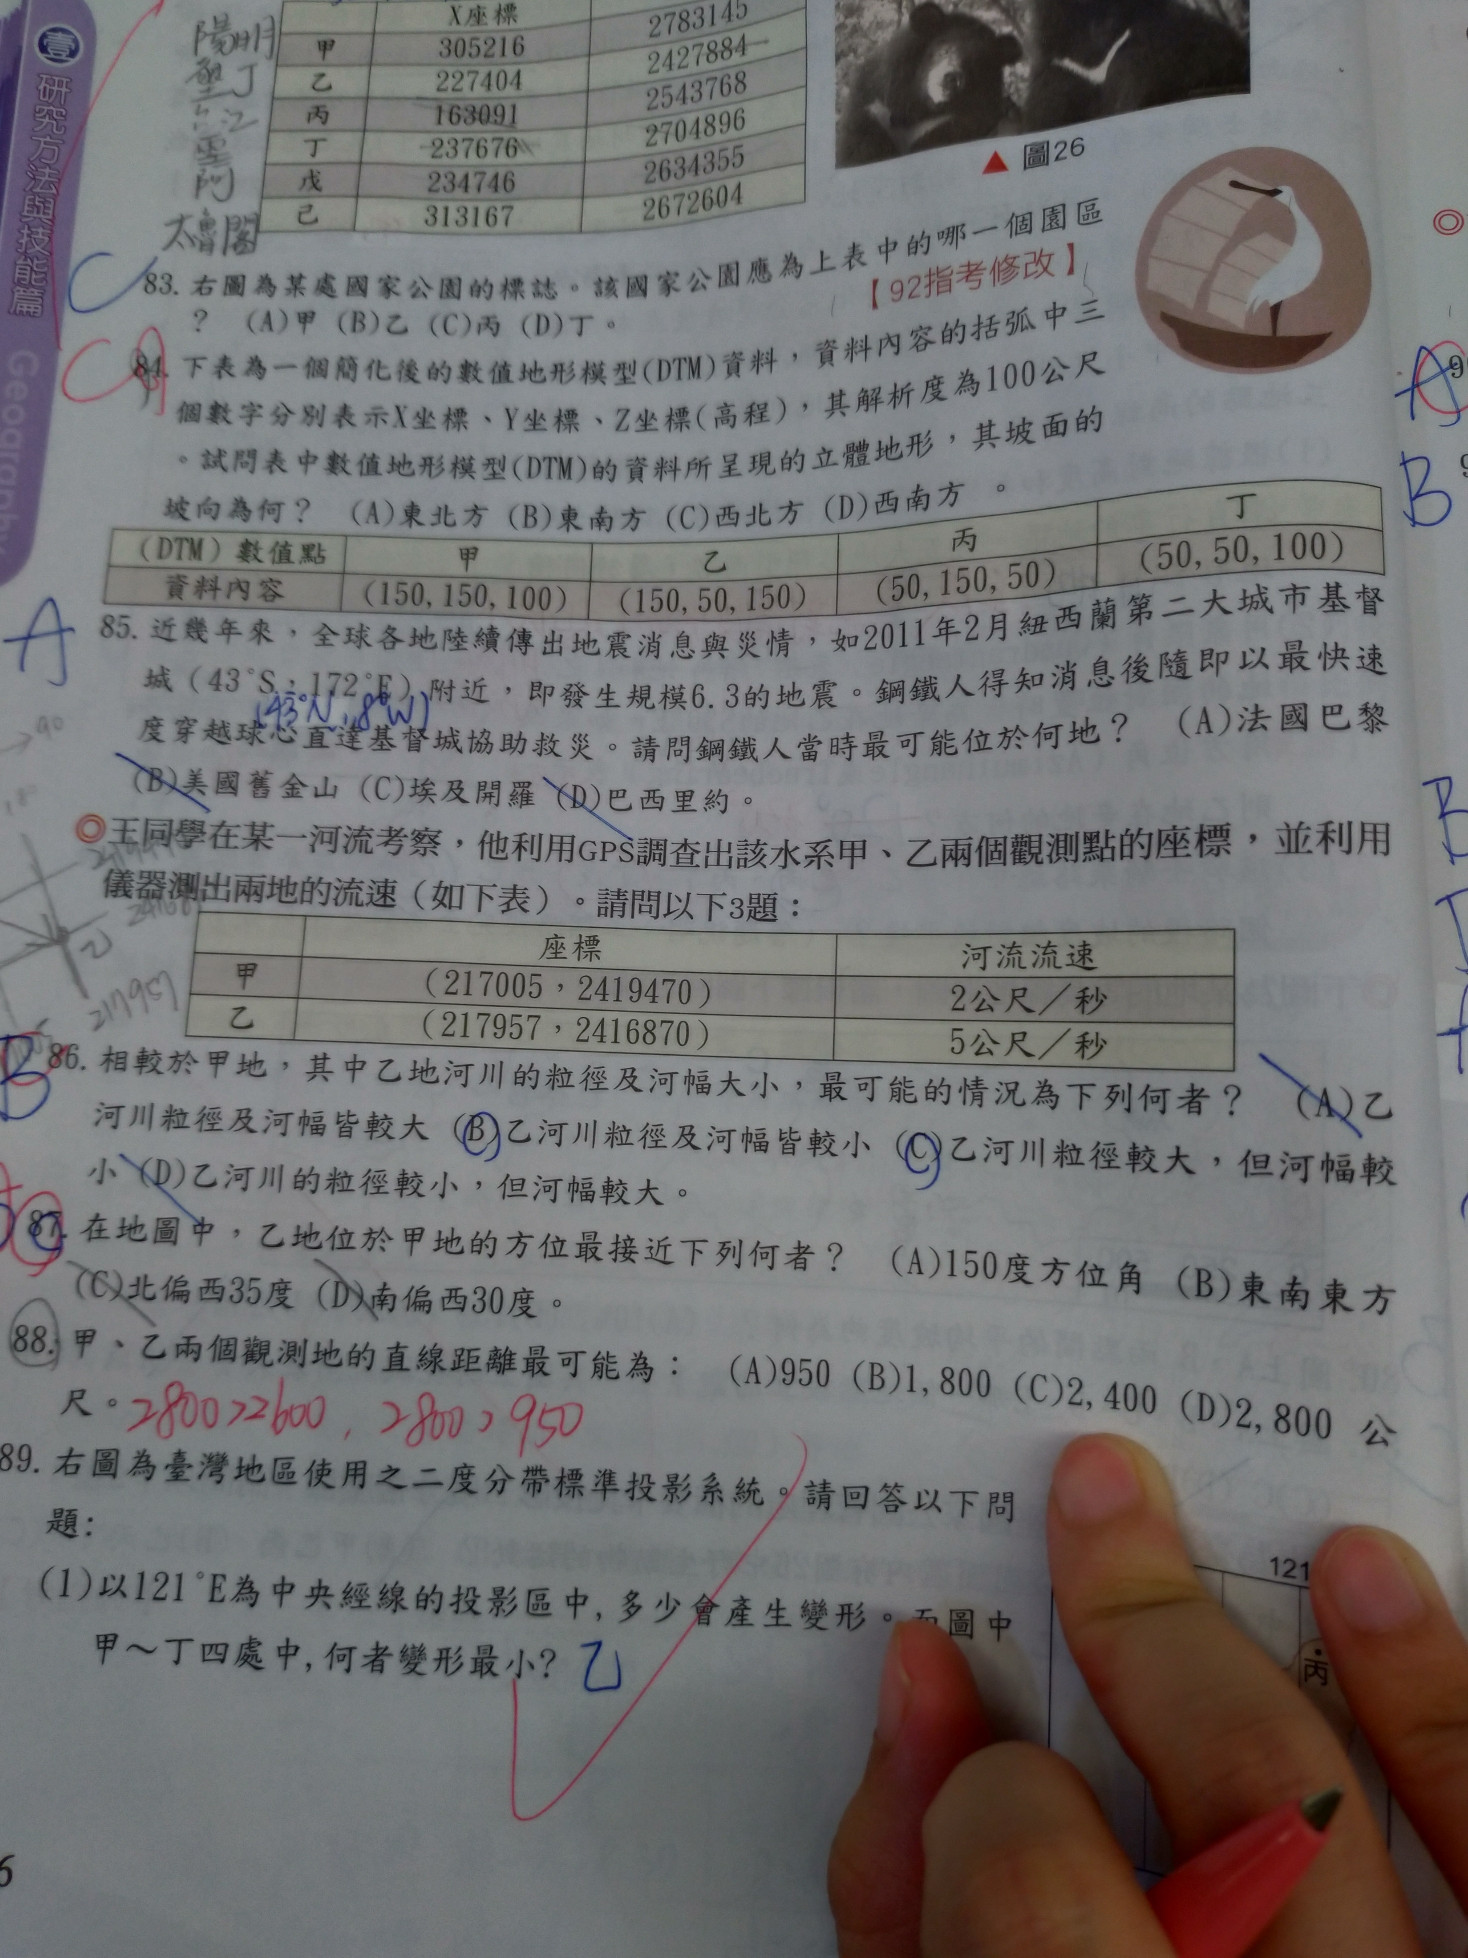 壹 研究方法與技能篇 Geography
X座標
2783145
陽明 甲 305216 2427884
墾丁 乙 227404 2543768
丙 163091 2704896
丁 237676 2634355
戊 234746 2672604
太魯閣 己 313167
▲ 圖26
C 83. 右圖為某處國家公園的標誌。該國家公園應為上表中的哪一個園區
? (A)甲 (B)乙 (C)丙 (D)丁。 【92指考修改】
C 84. 下表為一個簡化後的數值地形模型(DTM)資料，資料內容的括弧中三
個數字分別表示X坐標、Y坐標、Z坐標(高程)，其解析度為100公尺
。試問表中數值地形模型(DTM)的資料所呈現的立體地形，其坡面的
坡向為何？ (A)東北方 (B)東南方 (C)西北方 (D)西南方 。
(DTM) 數值點 甲 乙 丙 丁
資料內容 (150,150,100) (150,50,150) (50,150,50) (50,50,100)
A 85. 近幾年來，全球各地陸續傳出地震消息與災情，如2011年2月紐西蘭第二大城市基督
城（43°S，172°E）附近，即發生規模6.3的地震。鋼鐵人得知消息後隨即以最快速
(43°N, 8°W)
度穿越球心直達基督城協助救災。請問鋼鐵人當時最可能位於何地？ (A)法國巴黎
(B)美國舊金山 (C)埃及開羅 (D)巴西里約。
◎王同學在某一河流考察，他利用GPS調查出該水系甲、乙兩個觀測點的座標，並利用
儀器測出兩地的流速（如下表）。請問以下3題：
座標 河流流速
甲 （217005，2419470） 2公尺／秒
乙 （217957，2416870） 5公尺／秒
乙
217957
B 86. 相較於甲地，其中乙地河川的粒徑及河幅大小，最可能的情況為下列何者？ (A)乙
河川粒徑及河幅皆較大 (B)乙河川粒徑及河幅皆較小 (C)乙河川粒徑較大，但河幅較
小 (D)乙河川的粒徑較小，但河幅較大。
87. 在地圖中，乙地位於甲地的方位最接近下列何者？ (A)150度方位角 (B)東南東方
(C)北偏西35度 (D)南偏西30度。
88. 甲、乙兩個觀測地的直線距離最可能為： (A)950 (B)1,800 (C)2,400 (D)2,800 公
尺。 2800>2600, 2800>950
89. 右圖為臺灣地區使用之二度分帶標準投影系統。請回答以下問
題:
(1)以121°E為中央經線的投影區中,多少會產生變形。而圖中
甲～丁四處中,何者變形最小? 乙
121
丙
6
A
B
B